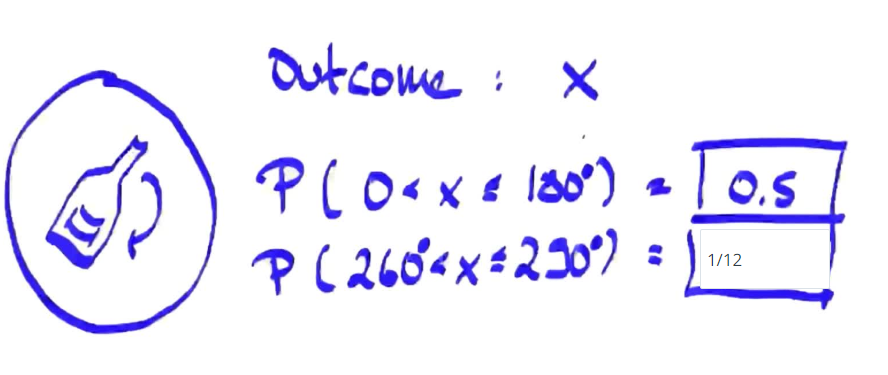 Outcome : x
P ( 0 < x ≤ 180° ) = 0.5
P ( 260° < x ≤ 290° ) = 1/12